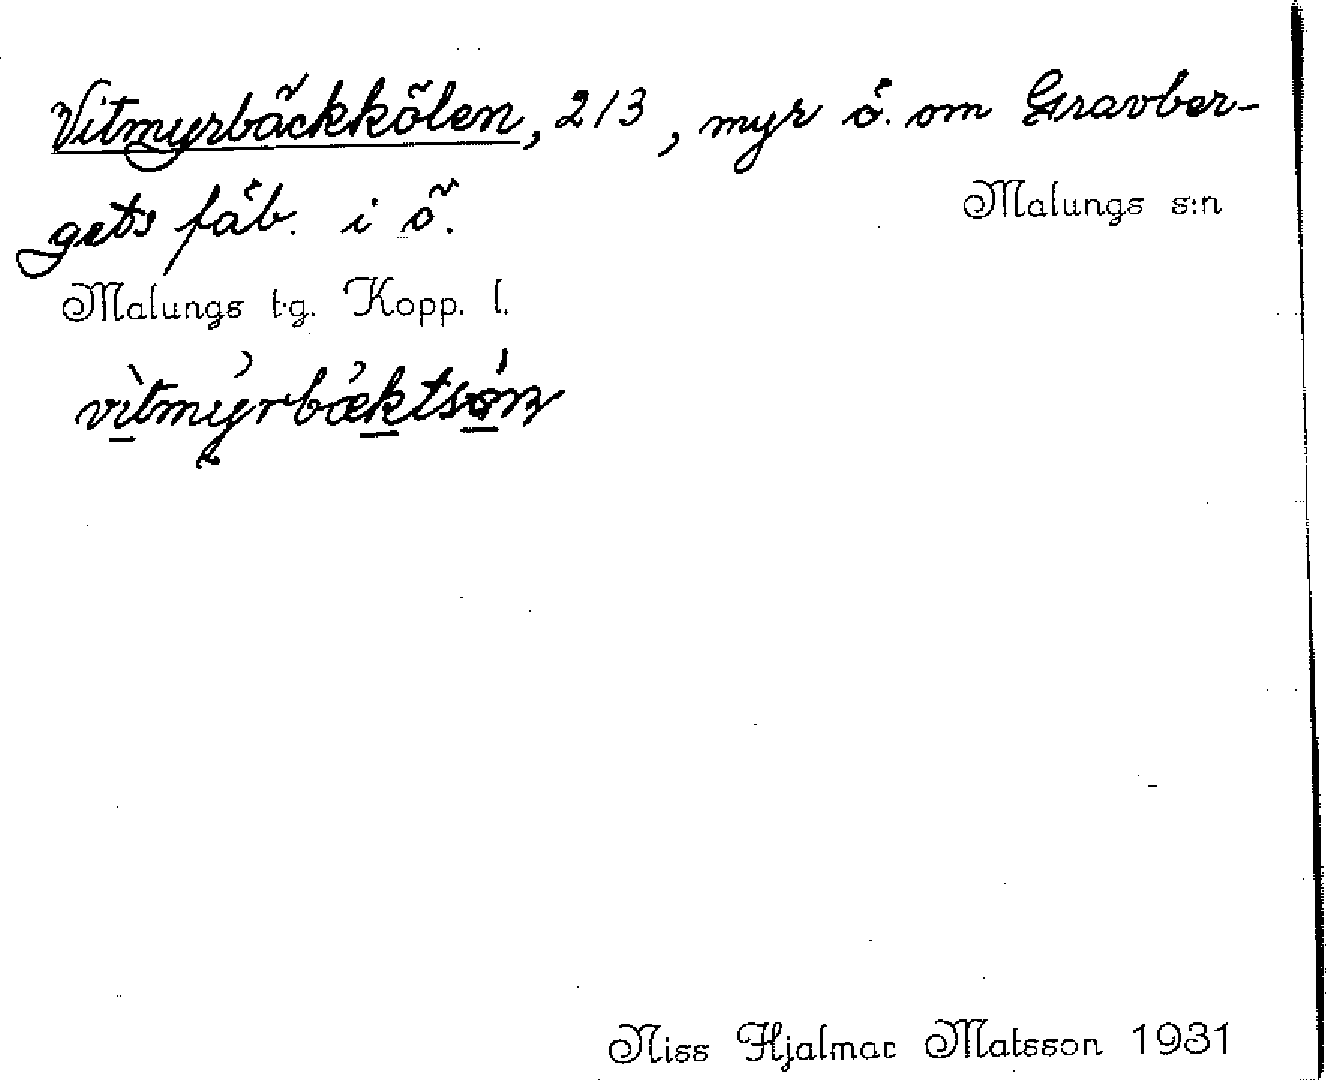 Vitmyrbäckkölen, 2/3, myr ö. om Gravber-
gets fäb. i ö.
Malungs s:n
Malungs t.g. Kopp. l.
vìtmy̓rbæktsón
Niss Hjalmar Matsson 1931